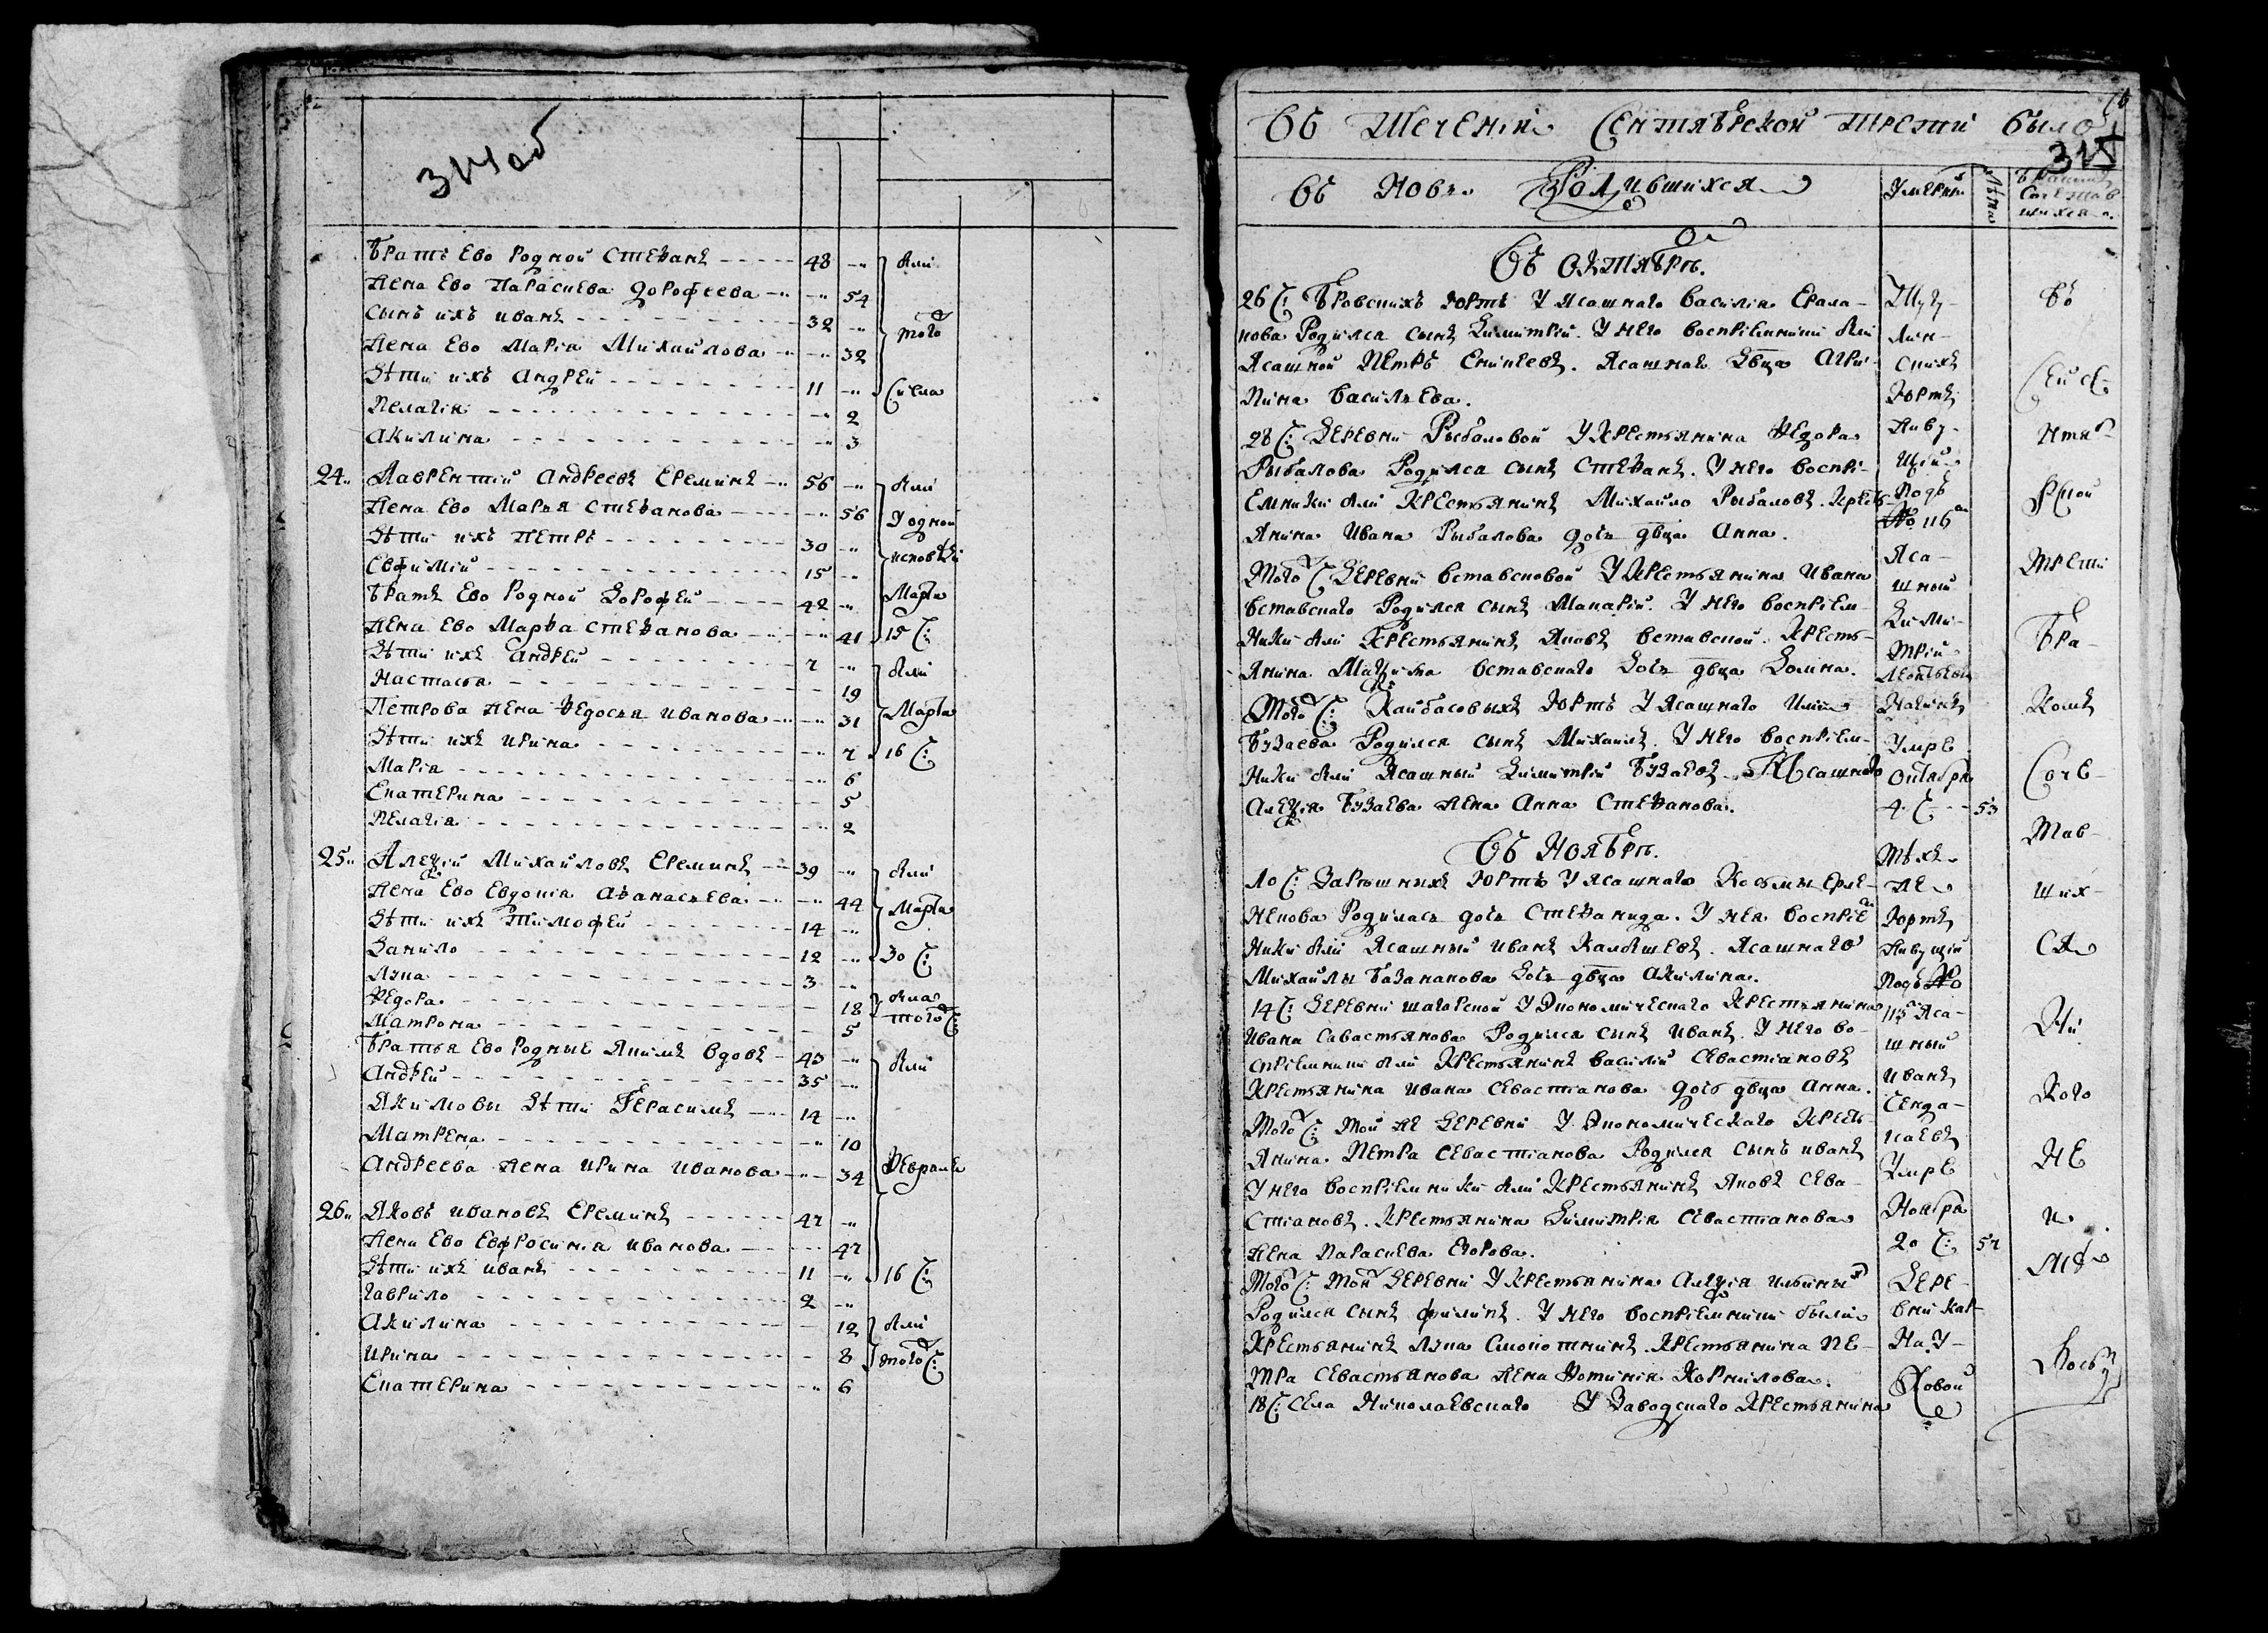 314 об
Братъ Ево Родной Степанъ 48
Жена Ево Параскева Дорофеева 54
Сынъ ихъ Иванъ 32
Жена Ево Марія Михайлова 32
Дѣти ихъ Андрей 11
Пелагія 2
Акилина 3
того
Числа
24 Лаврентій Андреевъ Ереминъ 56
Жена Ево Марья Степанова 56
Дѣти ихъ Петръ 30
Евфимій 15
Братъ Ево Родной Дорофей 42
Жена Ево Марѳа Степанова 41
Дѣти ихъ Андрей 7
Настасья 19
Петрова Жена Ѳедосья Иванова 31
Дѣти ихъ Ирина 7
Марія 6
Екатерина 5
Пелагія 2
У одной
исповѣди
Марта
15
Марта
16
25 Алеѯій Михайловъ Ереминъ 39
Жена Ево Евдокія Аѳанасьева 44
Дѣти ихъ Тимофей 14
Данило 12
Лука 3
Ѳедора 18
Матрона 5
Братья Ево Родные Якимъ вдовъ 43
Андрей 35
Якимовы Дѣти Герасимъ 14
Матрена 10
Андреева Жена Ирина Иванова 34
Марта
30
того
Февраля
26 Яковъ Ивановъ Ереминъ 47
Жена Ево Евфросинія Иванова 47
Дѣти ихъ Иванъ 11
Гаврило 2
Акилина 12
Ирина 8
Екатерина 6
16
того
Въ Теченіи Сентябрской Трети Было
315
Въ Новѣ Родившихся
Умерши
Лѣта
Бракомъ
Сочетав
шихся
Въ Октябрѣ.
26 Юртъ У Ясашнаго Василія Ерала-
нова Родился сынъ Димитрій. У него воспріемники были
Ясашной Петръ Ясашнаго двца Агри-
пина Васильева.
28 Деревни Рыбаловой У Крестьянина Ѳедора
Рыбалова Родился сынъ Степанъ. У него воспрі-
емники были Крестьянинъ Михайло Рыбаловъ. Кресть-
янина Ивана Рыбалова дочь двца Анна.
Того Деревни Вставсковой У Крестьянина Ивана
Вставскаго Родился сынъ Макарій. У него воспріем-
ники были Крестьянинъ Яковъ Вставской. Кресть-
янина Вставскаго дочь двца Домна.
Того Кайбасовыхъ Юртъ У Ясашнаго
Бузаева Родился сынъ Михаилъ. У него воспріем-
ники были Ясашный Димитрій Бузаевъ. Ясашнаго
Алеѯія Бузаева жена Анна Степанова.
Въ Ноябрѣ.
10 Юртъ У Ясашнаго Косьмы Ерле-
некова Родилась дочь Степанида. У нея воспріем-
ники были Ясашный Иванъ Ясашнаго
Михайлы Базанакова дочь двца Акилина.
14 Деревни Шагарской У Экономическаго Крестьянина
Ивана Севастьянова Родился сынъ Иванъ. У него во-
спріемники были Крестьянинъ Василій Севастіановъ
Крестьянина Ивана Севастіанова дочь двца Анна.
Того Той же Деревни У Экономическаго Кресть-
янина Петра Севастіанова Родился сынъ Иванъ
У него воспріемники были Крестьянинъ Яковъ Сева-
стіановъ. Крестьянина Димитрія Севастіанова
жена Параскева Егорова.
Того Той Деревни У Крестьянина Алеѯія Ильиныхъ
Родился сынъ Филипъ. У него воспріемники были
Крестьянинъ Лука Сивокотинъ. Крестьянина Пе-
тра Севастьянова жена Фотинія Корнилова.
18 Села Николаевскаго У Заводскаго Крестьянина
Юртъ
Живу-
щій
Подъ
№ 116
Яса-
шной
Дими-
трій
Умре
Октября
4 53
Тѣхъ
же
Юртъ
Живущій
Подъ №
115 Яса-
шный
Иванъ
Сенда-
каевъ
Умре
Ноября
20 57
Дере-
вни Кар-
на У-
ховой
Въ
Сей Се-
нтяб-
рской
Трети
Бра-
комъ
Соче-
тав-
ших-
ся
Ни
Кого
Не